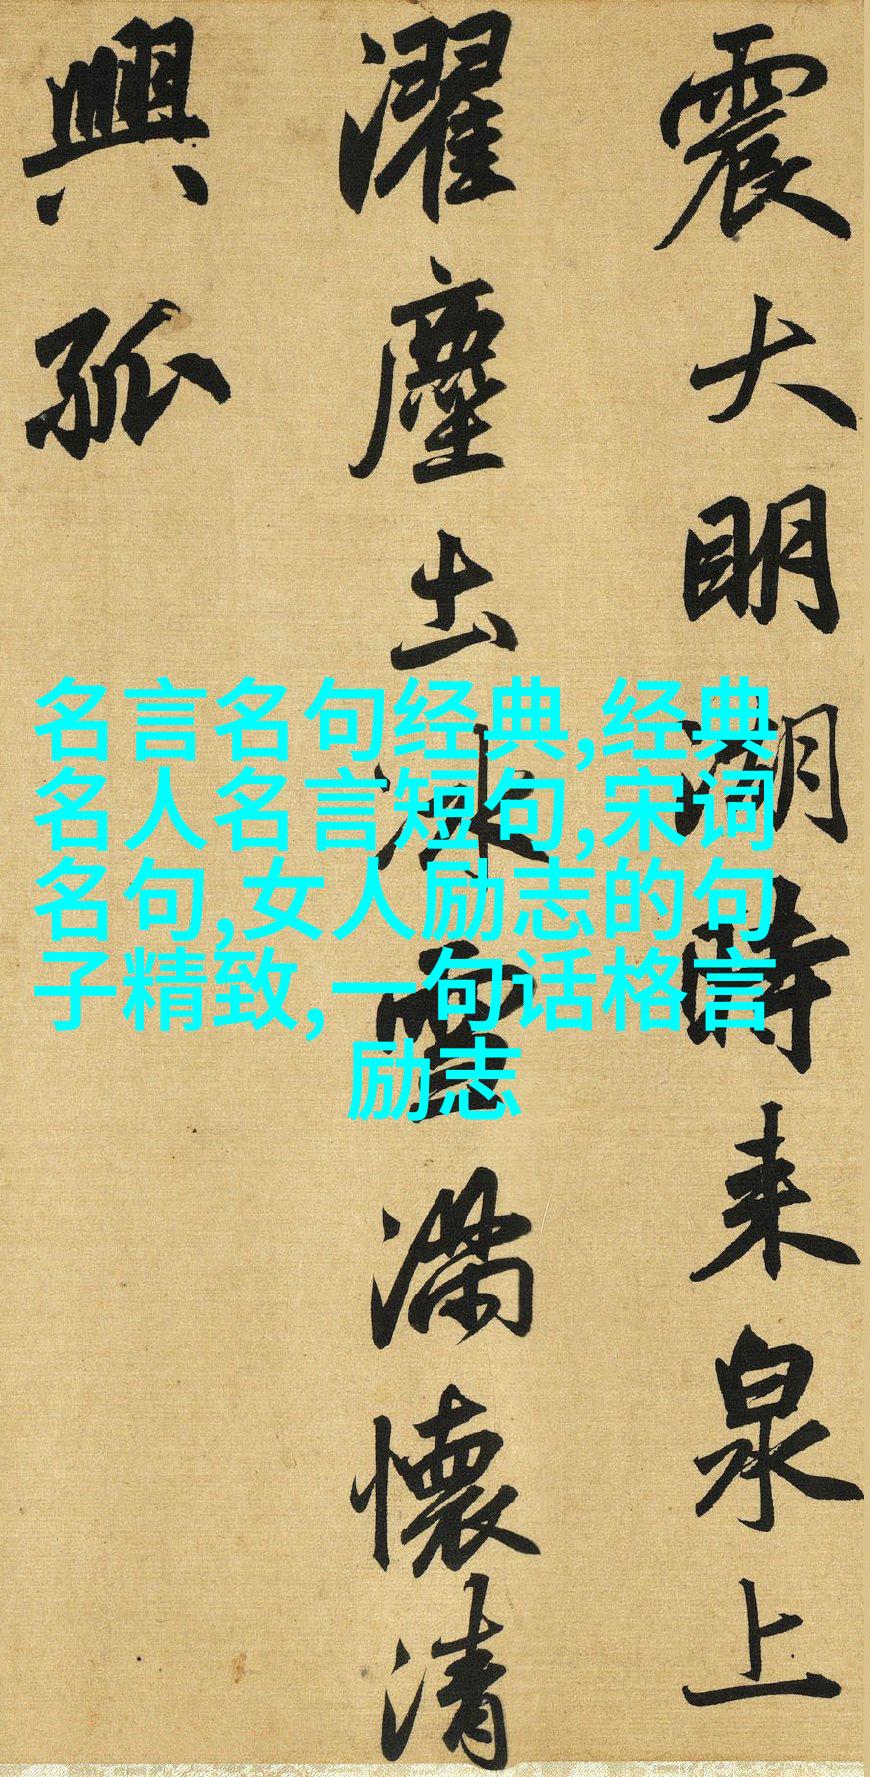 震大明湖時来泉上
濯塵出冰雪滿懷清
興孤
名言名句经典,经典
名人名言短句,宋词
名句,女人励志的句
子精致,一句话格言
励志